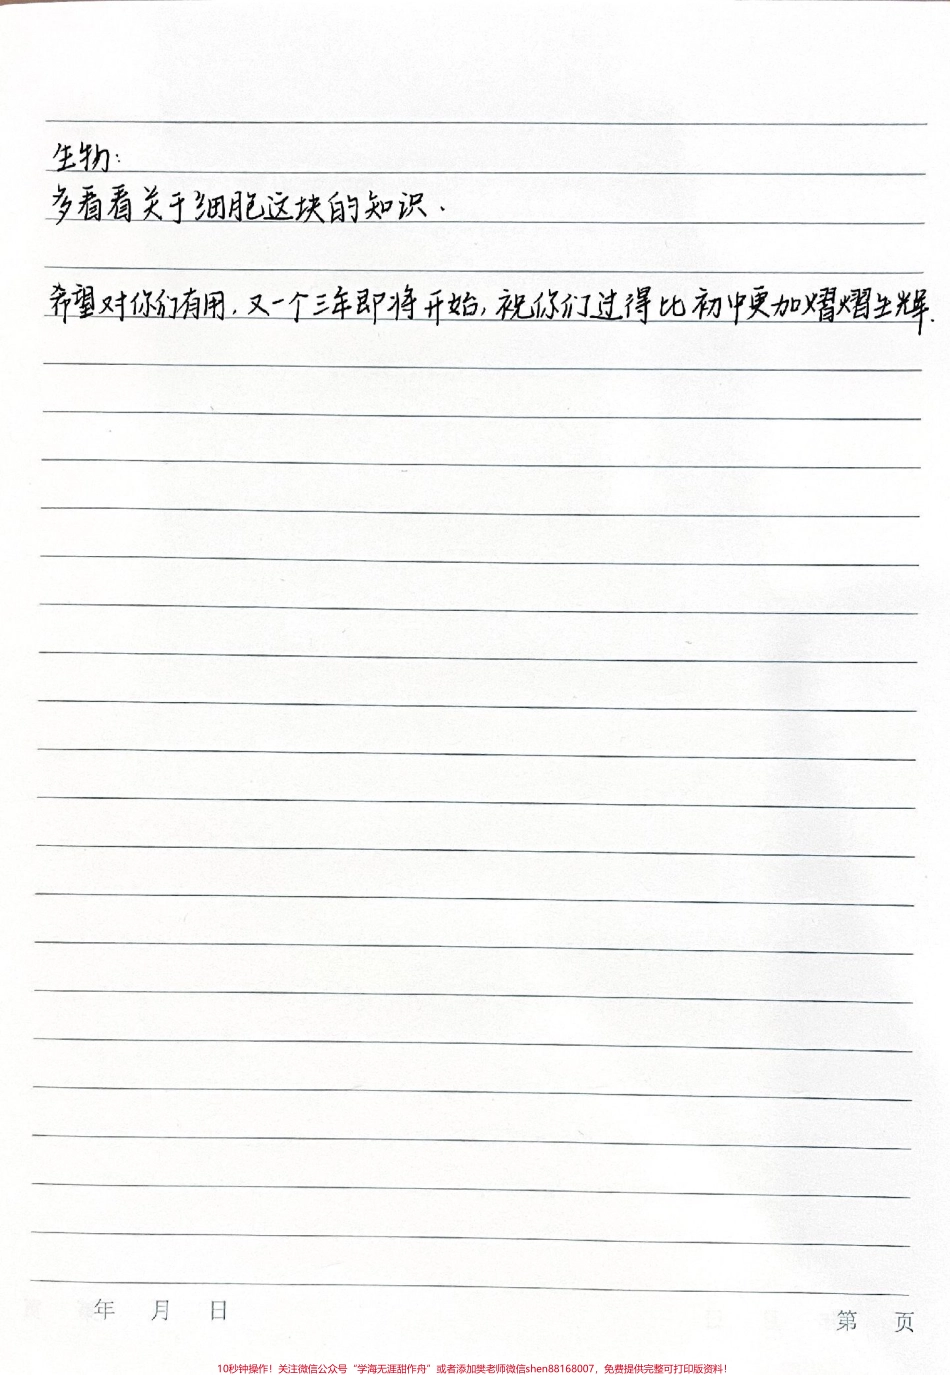 生物：
多看看关于细胞这块的知识．
希望对你们有用．又一个三年即将开始，祝你们过得比初中更加熠熠生辉．
年 月 日
第 页
10秒钟操作！关注微信公众号“学海无涯甜作舟”或者添加樊老师微信shen88168007，免费提供完整可打印版资料！